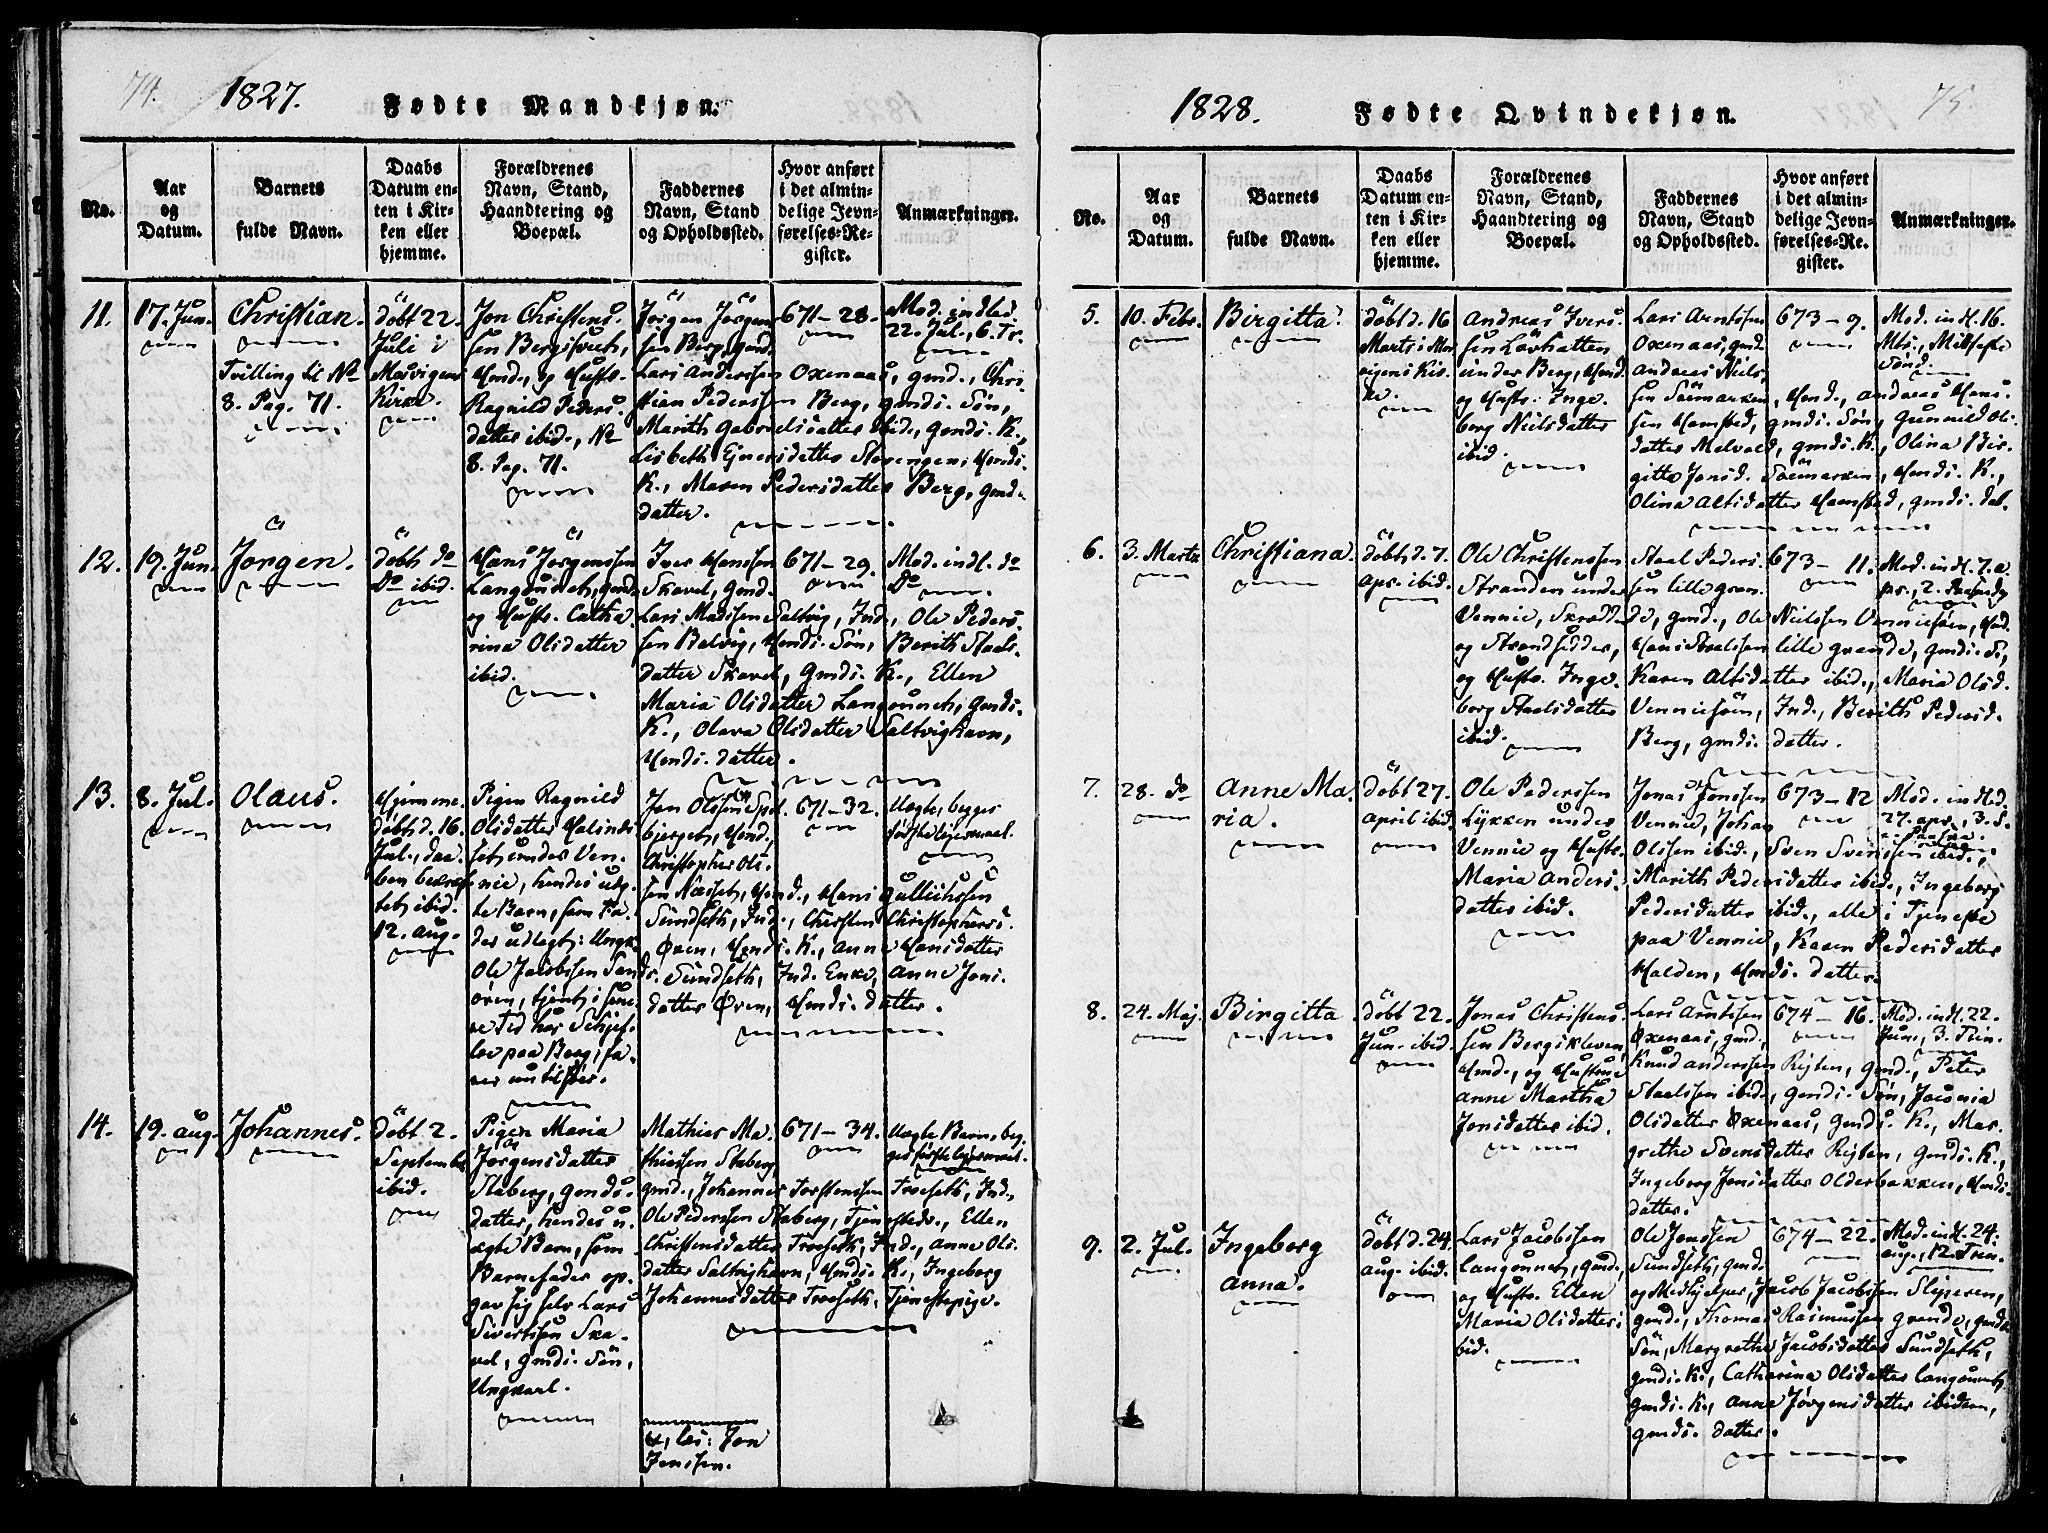 74.
1827.
Fødte Mandkjøn.
No.
Aar
og
Datum.
Barnets
fulde Navn.
Daabs
Datum en-
ten i Kir-
ken eller
hjemme.
Forældrenes
Navn, Stand,
Haandtering og
Boepæl.
Faddernes
Navn, Stand
og Opholdssted.
Hvor anført
i det almin-
delige Jevn-
førelses-Re-
gister.
Anmærkninger.
11.
17. Jun.
Christian.
Tvilling til No
8. Pag. 71.
döbt 22.
Juli i
Mosvigens
Kirke.
Jon Christens.
sen Bergssveeh,
Hmd., og Hustr.
Ragnild Peders.
datter ibid., No
8. Pag. 71.
Jörgen Jörgen
sen Berg, gmd.
Lars Anderssen Oxenaas, gmd., Chri.
stian Pederssen Berg, gmds. Søn,
Marith Gabrielsdatter ibid., gmds. K.,
Lisbeth Ejnersdatter Stavengen, Hmds.
K., Maren Pedersdatter Berg, gmds
datter.
671-28.
Mod. indled.
22. Jul., 6. Tr.
12.
19. Jun.
Jörgen.
döbt do
Do ibid.
Hans Jörgenssen
Langönneh, gmd.
og Hustr. Catha.
rina Olsdatter
ibid.
Iver Hanssen
Skavel, gmd.
Lars Madssen Saltvig, Ind., Ole Peders.
sen Balvig, Hmds. Søn, Berith Staals.
datter Skavel, gmds. K., Ellen
Maria Olsdatter Langönneh, gmds.
K., Olava Olsdatter Saltvighavn,
Hmds. datter.
671-29.
Mod. indl. do
Do
13.
8. Jul.
Olaus.
Hjemme.
döbt d. 16.
Jul., daa-
ben bekræf
tet ibid.
12. Aug.
Pigen Ragnild
Olsdatter Halsinds
set under Ven-
nie, hendes uæg-
te Barn, som Fa-
der udlagt: Ungk.
Ole Jacobssen San
ören, tjent i sene
re Tid hos Sehjef.
lov paa Berg, fa.
Jon Olssen Spel
bjerget, Hmd.,
Christopher Ols-
sen Næsset, Hmd., Hans Gullichssen
Sundseth, Ind., Chersten Christophers.
Øren, Hmds. K., Anne Hansdatter
Sundseth, Ind. Enke, Anne Jons.
datter Øren, Hmds. datter.
671-32.
Uægte, begges
første lejermaal.
14.
19. Aug.
Johannes.
döbt 2.
Septembr
ibid.
Pigen Maria
Jörgensdatter
Staberg, gmds.
datter, hendes u.
ægte Barn, som
Barnefader op.
gav sig selv Lars
Sivertssen Ska-
vel, gmds. Søn,
Ungkarl.
Mathias Ma.
thiassen Staberg
gmd., Johannes Torstenssen Troeseth, Ind.,
Ole Pederssen Staberg, Tjenestedr., Ellen
Christensdatter Troeseth, Ind., Anne Ols.
datter Saltvighavn, Hmds. K., Ingeborg
Johannesdatter Troeseth, Tjenestepige.
671-34.
Uægte Barn, beg.
ges første lejermaal.
læs: Jon
Jonssen.
75.
1828.
Fødte Qvindekjøn.
No.
Aar
og
Datum.
Barnets
fulde Navn.
Daabs
Datum en-
ten i Kir-
ken eller
hjemme.
Forældrenes
Navn, Stand,
Haandtering og
Boepæl.
Faddernes
Navn, Stand
og Opholdssted.
Hvor anført
i det almin-
delige Jevn-
førelses-Re-
gister.
Anmærkninger.
5.
10. Febr.
Birgitta.
döbt d. 16
Marts i Mos
vigens Kir.
ke.
Andreas Ivers.
sen Lövhatten
under Berg, Hmd.
og Hustr. Inge.
borg Nielsdatter
ibid.
Lars Arntssen
Oxenaas, gmd.
Andreas Niels,
sen Söemarken, Hmd., Andreas Hans.
sen Hamstad, gmds. Søn, Gunnild Ol.
datter Melvold, gmds. K., Olina Bir.
gitta Jonsd. Söemarken, Hmds. K.,
Olina Altsdatter Hamstad, gmds. dat.
673-9.
Mod. indl. 16.
Mts., Midfaste
Sönd.
6.
3. Marts
Christiana.
döbt d. 7.
Apr. ibid.
Ole Christenssen
Stranden under
Vennie, Skrædd.
og Strandsidder,
og Hustr. Inge.
borg Staalsdatter
ibid.
Staal Peders.
sen lille gran.
de, gmd., Ole Nielssen Venniesöen, Hmd.
Hans Staalssen lille grande, gmds. S.,
Karen Altsdatter ibid., Maria Olsd.
Venniesöen, Ind., Berith Pedersd.
Berg, gmds. datter.
673-11.
Mod. indl. 7. A.
pr., 2. Paaskedg
7.
28. do
Anne Ma.
ria.
döbt 27.
April ibid.
Ole Pederssen
Lykken under
Vennie og Hustr.
Maria Anders.
datter ibid.
Jonas Jonssen
Vennie, Johan
Olssen ibid., Sven Svenssen ibid.,
Marith Pedersdatter ibid., Ingeborg
Pedersdatter ibid., alle i Tjeneste
paa Vennie, Karen Pedersdatter
Halden, Hmds. datter.
673-12
Mod. indled.
27. Apr., 3. S.
8.
24. Maj.
Birgitta
döbt 22.
Jun. ibid.
Jonas Christens.
sen Bergskleven,
Hmd., og Hustrue
Anne Martha
Jonsdatter ibid.
Lars Arntssen
Oxenaas, gmd.,
Knud Anderssen Rejten, gmd., Peter
Staalssen ibid., gmds. Søn, Jaconia
Olsdatter Oxenaas, gmds. K., Mar.
grethe Svensdatter Rejten, gmds. K.,
Ingeborg Jonsdatter Olderbakken, Hmds.
datter.
674-16.
Mod. indl. 22.
Jun., 3. Trin.
9.
2. Jul.
Ingeborg
Anna.
döbt d. 24.
Aug. ibid.
Lars Jacobssen
Langönnet, gmd.,
og Hustr. Ellen
Maria Olsdatter i
bid.
Ole Jonssen
Sundseth, gmd.
og Medhjelper, Jacob Jacobssen Sliperen,
gmd., Thomas Rasmussen grande, gmds
Sön, Margrethe Jacobsdatter Sundseth,
gmds. K., Catharina Olsdatter Langönnet,
gmds. K., Anne Jørgensdatter ibidem,
gmds. datter.
674-22.
Mod. indl. 24.
Aug., 12. Trin.